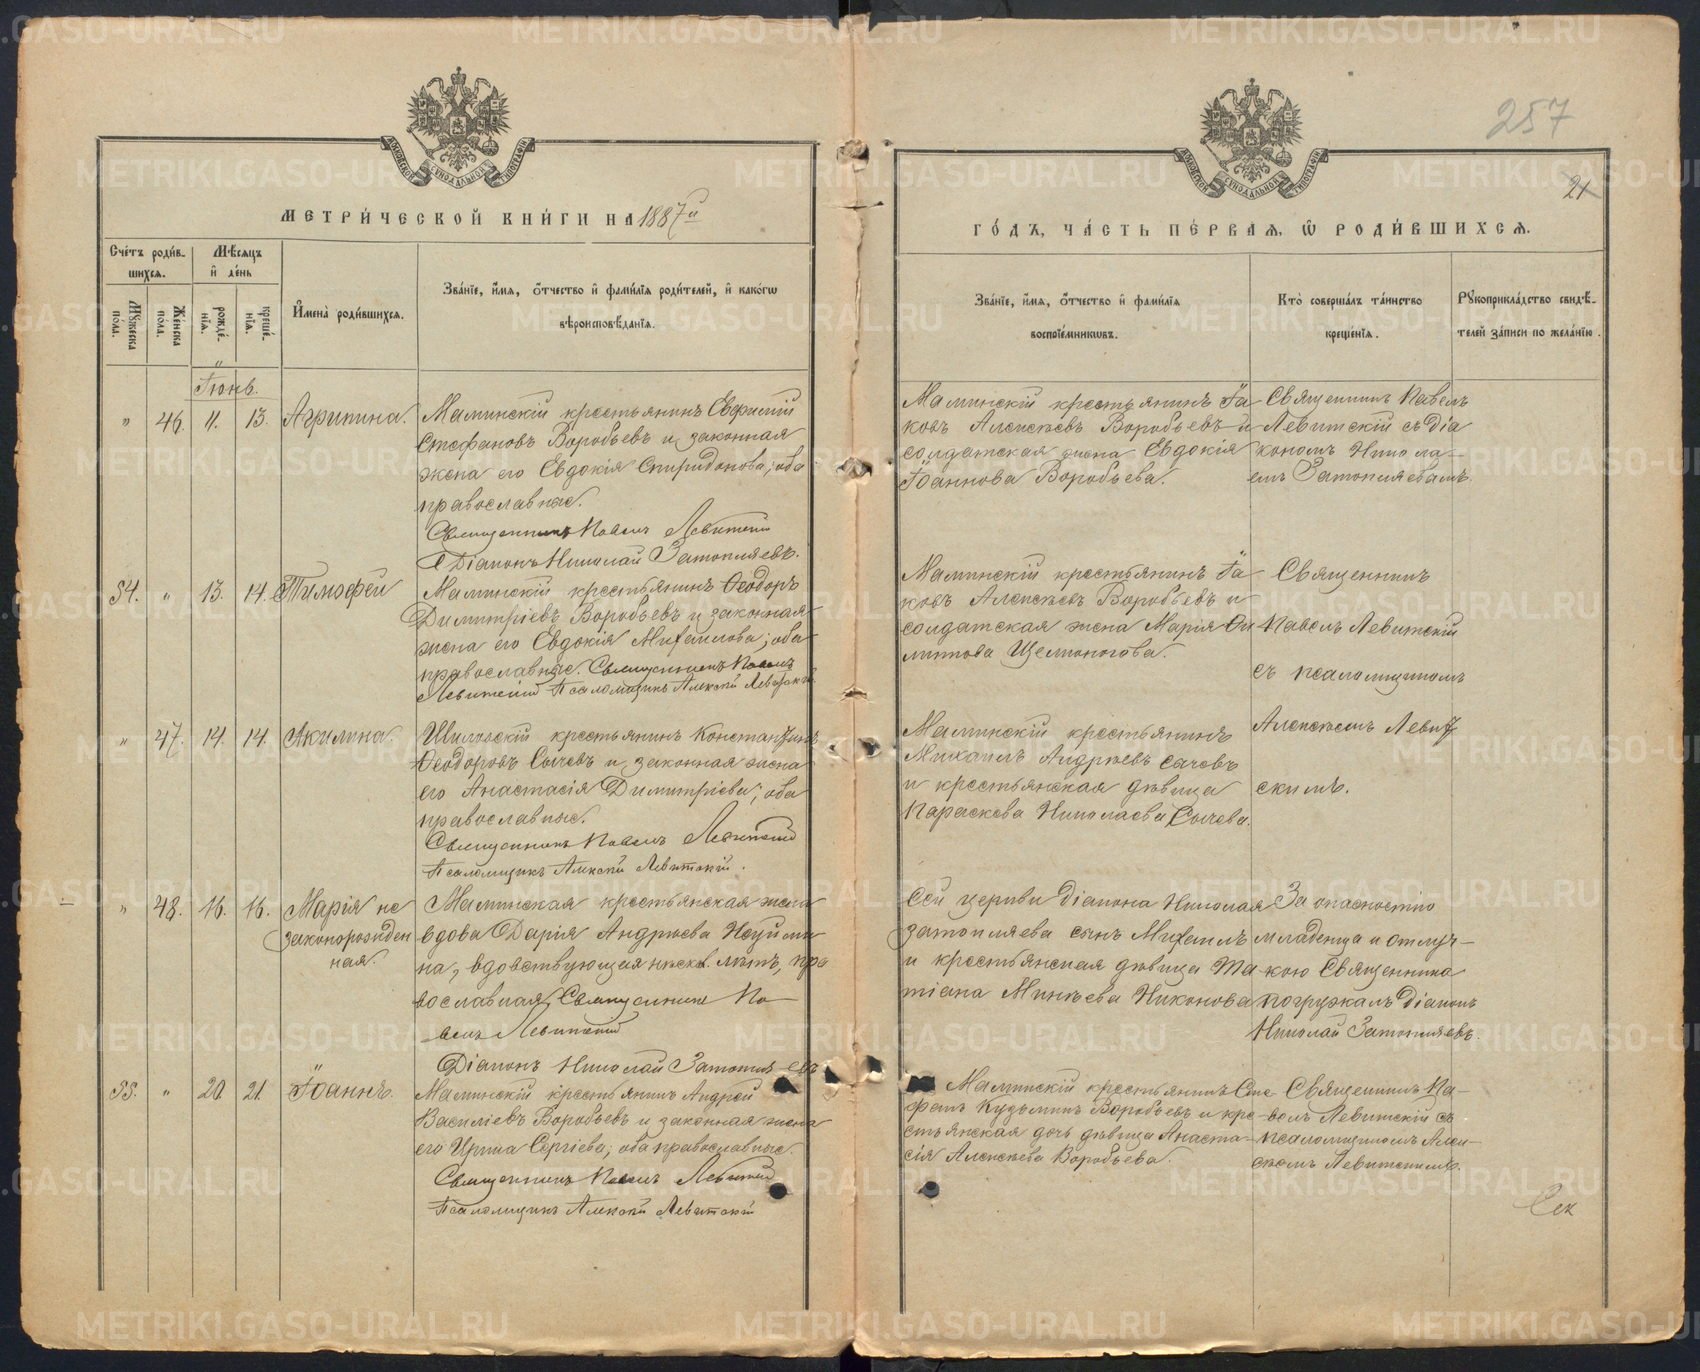 257
21
МЕТРИ́ЧЕСКОЙ КНИ́ГИ НА 1887й
ГО́ДЪ, ЧА́СТЬ ПЕ́РВАѦ, Ѽ РОДИ́ВШИХСѦ.
Сче́тъ роди́в-
шихся.
Мѣ́сяцъ
и де́нь
Му́жеска
по́ла.
Же́нска
по́ла.
рожде́-
нія.
креще́-
нія.
Имена̀ роди́вшихся.
Зва́ніе, и́мя, ѻ́тчество и фами́лія роди́телей, и како́гѡ
вѣроисповѣ́данія.
Зва́ніе, и́мя, ѻ́тчество и фами́лія
воспріе́мникѡвъ.
Кто̀ соверша́лъ та́инство
креще́нія.
Рукоприкла́дство свидѣ́-
телей за́писи по жела́нію.
Іюнь.
" 46. 11. 13. Агрипина.
Маминскій крестьянинъ Евфимій
Стефановъ Воробьевъ и законная
жена его Евдокія Спиридонова; оба
православные.
Священникъ Павелъ Левитскій
Діаконъ Николай Затопляевъ.
Маминскій крестьянинъ Іа
ковъ Алексѣевъ Воробьевъ и
солдатская жена Евдокія
Іоаннова Воробьева.
Священникъ Павелъ
Левитскій съ діа
кономъ Никола-
емъ Затопляевымъ.
54. " 13. 14. Тимофей
Маминскій крестьянинъ Ѳеодоръ
Димитріевъ Воробьевъ и законная
жена его Евдокія Михаилова; оба
православные. Священникъ Павелъ
Левитскій Псаломщикъ Алексій Левитскій
Маминскій крестьянинъ Іа
ковъ Алексѣевъ Воробьевъ и
солдатская жена Марія Фи
липпова Щелконогова.
Священникъ
Павелъ Левитскій
съ псаломщикомъ
Алексѣемъ Левит
скимъ.
" 47. 14. 14. Акилина.
Шиловскій крестьянинъ Константинъ
Ѳеодоровъ Сычевъ и законная жена
его Анастасія Димитріева; оба
православные.
Священникъ Павелъ Левитскій
Псаломщикъ Алексій Левитскій.
Маминскій крестьянинъ
Михаилъ Андреевъ Сычевъ
и крестьянская дѣвица
Параскева Николаева Сычева.
" 48. 16. 16. Марія не
законорожден
ная.
Маминская крестьянская жена
вдова Дарія Андреева
на, вдовствующая нѣск. лѣтъ, пра
вославная. Священникъ Па-
велъ Левитскій
Діаконъ Николай Затопляевъ
Сей церкви діакона Николая
Затопляева сынъ Михаилъ
и крестьянская дѣвица Та
тіана Никонова
За опасностію
младенца и отлуч-
кою Священника
погружалъ діаконъ
Николай Затопляевъ.
55. " 20. 21. Іоаннъ.
Маминскій крестьянинъ Андрей
Василіевъ Воробьевъ и законная жена
его Ирина Сергіева; оба православные.
Священникъ Павелъ Левитскій
Псаломщикъ Алексій Левитскій
Маминскій крестьянинъ Сте
фанъ Кузьминъ Воробьевъ и кре-
стьянская дочь дѣвица Анаста-
сія Алексѣева Воробьева.
Священникъ Па-
велъ Левитскій съ
псаломщикомъ Алек-
сѣемъ Левитскимъ.
METRIKI.GASO-URAL.RU